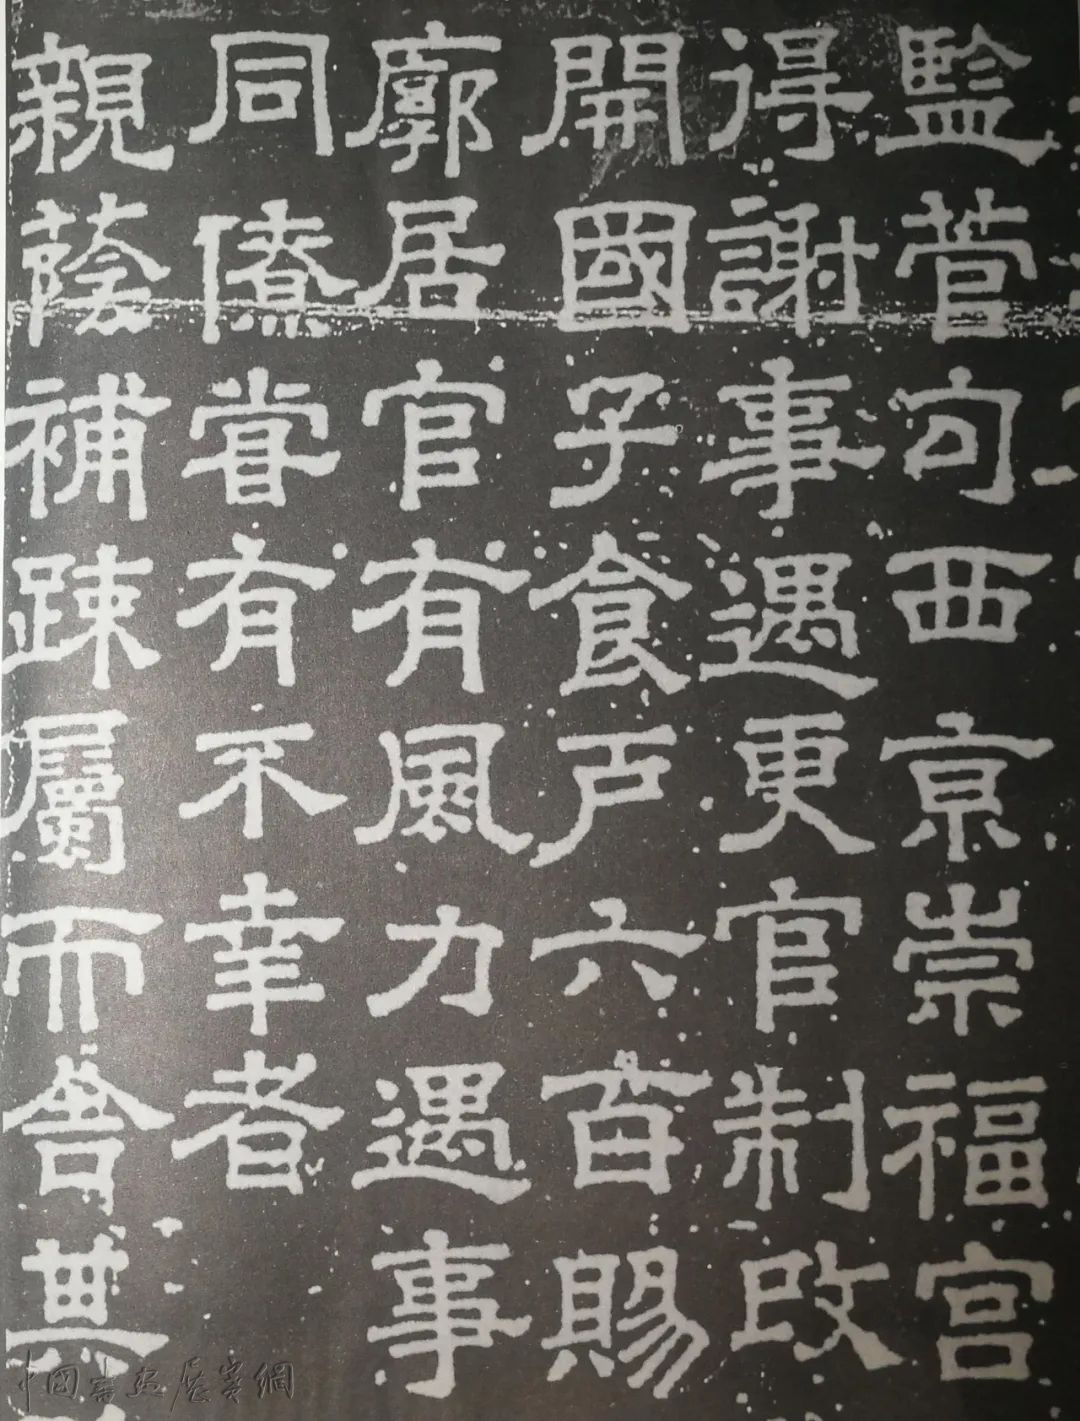 監管句西京崇福宮
得謝事遇更官制改
開國子食戶六百賜
廓居官有風力遇事
同僚甞有不幸者
親蔭補疎屬而舍其
中國書畫展賽網